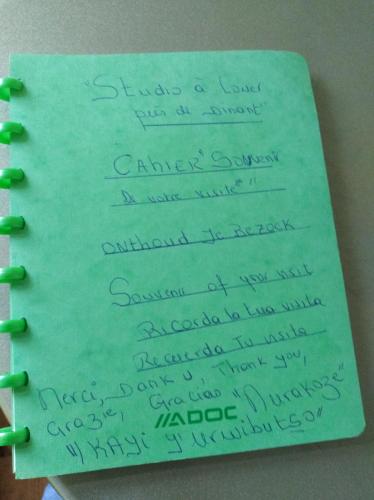 "Studio à Louer
près de Dinant"
CAHIER "Souvenir
De votre visite"
ONTHOUD Je BEZOEK
Souvenir of your visit
Ricorda la tua visita
Recuerda Tu visita
Merci, Dank u, Thank you,
Grazie, Gracias "Murakoze"
ADOC
"IKAYi y'urwibutso"